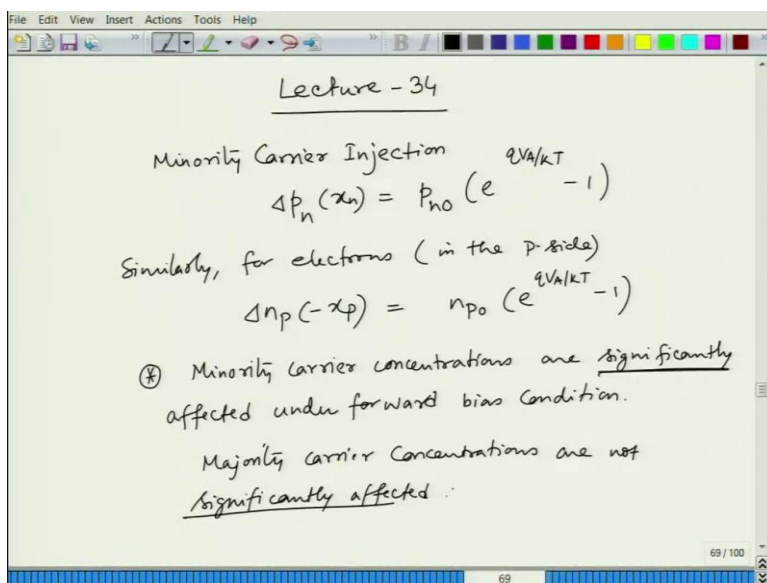 File Edit View Insert Actions Tools Help
Lecture - 34
Minority Carrier Injection
Δpₙ(xₙ) = pₙ₀ (e^(qVA/KT) - 1)
Similarly, for electrons (in the p-side)
Δnₚ(-xₚ) = nₚ₀ (e^(qVA/KT) - 1)
* Minority carrier concentrations are significantly
affected under forward bias condition.
Majority carrier concentrations are not
significantly affected.
69 / 100
69